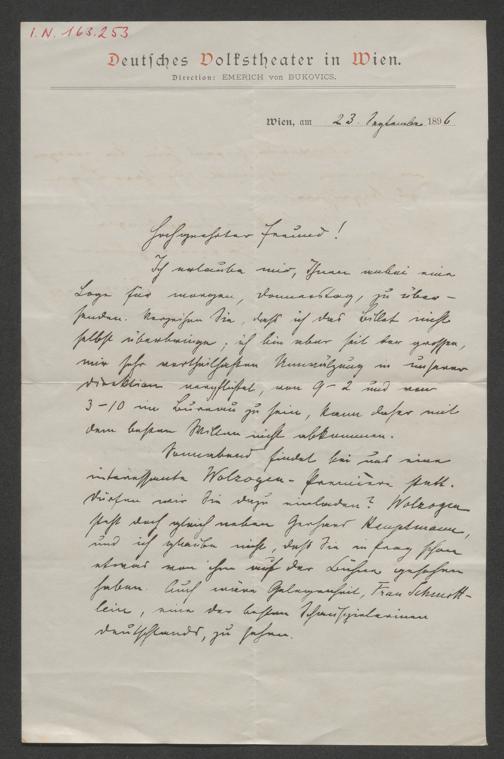 I. N. 163.253
Deutsches Volkstheater in Wien.
Direction: EMERICH von BUKOVICS.
Wien, am 23. September 1896
Hochgeehrter Freund!
Ich erlaube mir, Ihnen anbei eine
Loge für morgen, Donnerstag, zu über-
senden. Verzeihen Sie, daß ich das Billet nicht
selbst überbringe; ich bin aber seit der großen,
mir sehr vortheilhaften Umwälzung in unserer
Direktion verpflichtet, von 9-2 und von
3-10 im Bureau zu sein, kann daher mit
dem besten Willen nicht abkommen.
Sonnabend findet bei uns eine
interessante Wolzogen-Premiere statt.
Dürfen wir Sie dazu einladen? Wolzogen
steht doch gleich neben Gerhart Hauptmann,
und ich glaube nicht, daß Sie in Prag schon
etwas von ihm auf der Bühne gesehen
haben. Auch wäre Gelegenheit, Frau Schmitt-
lein, eine der besten Schauspielerinen
Deutschlands, zu sehen.